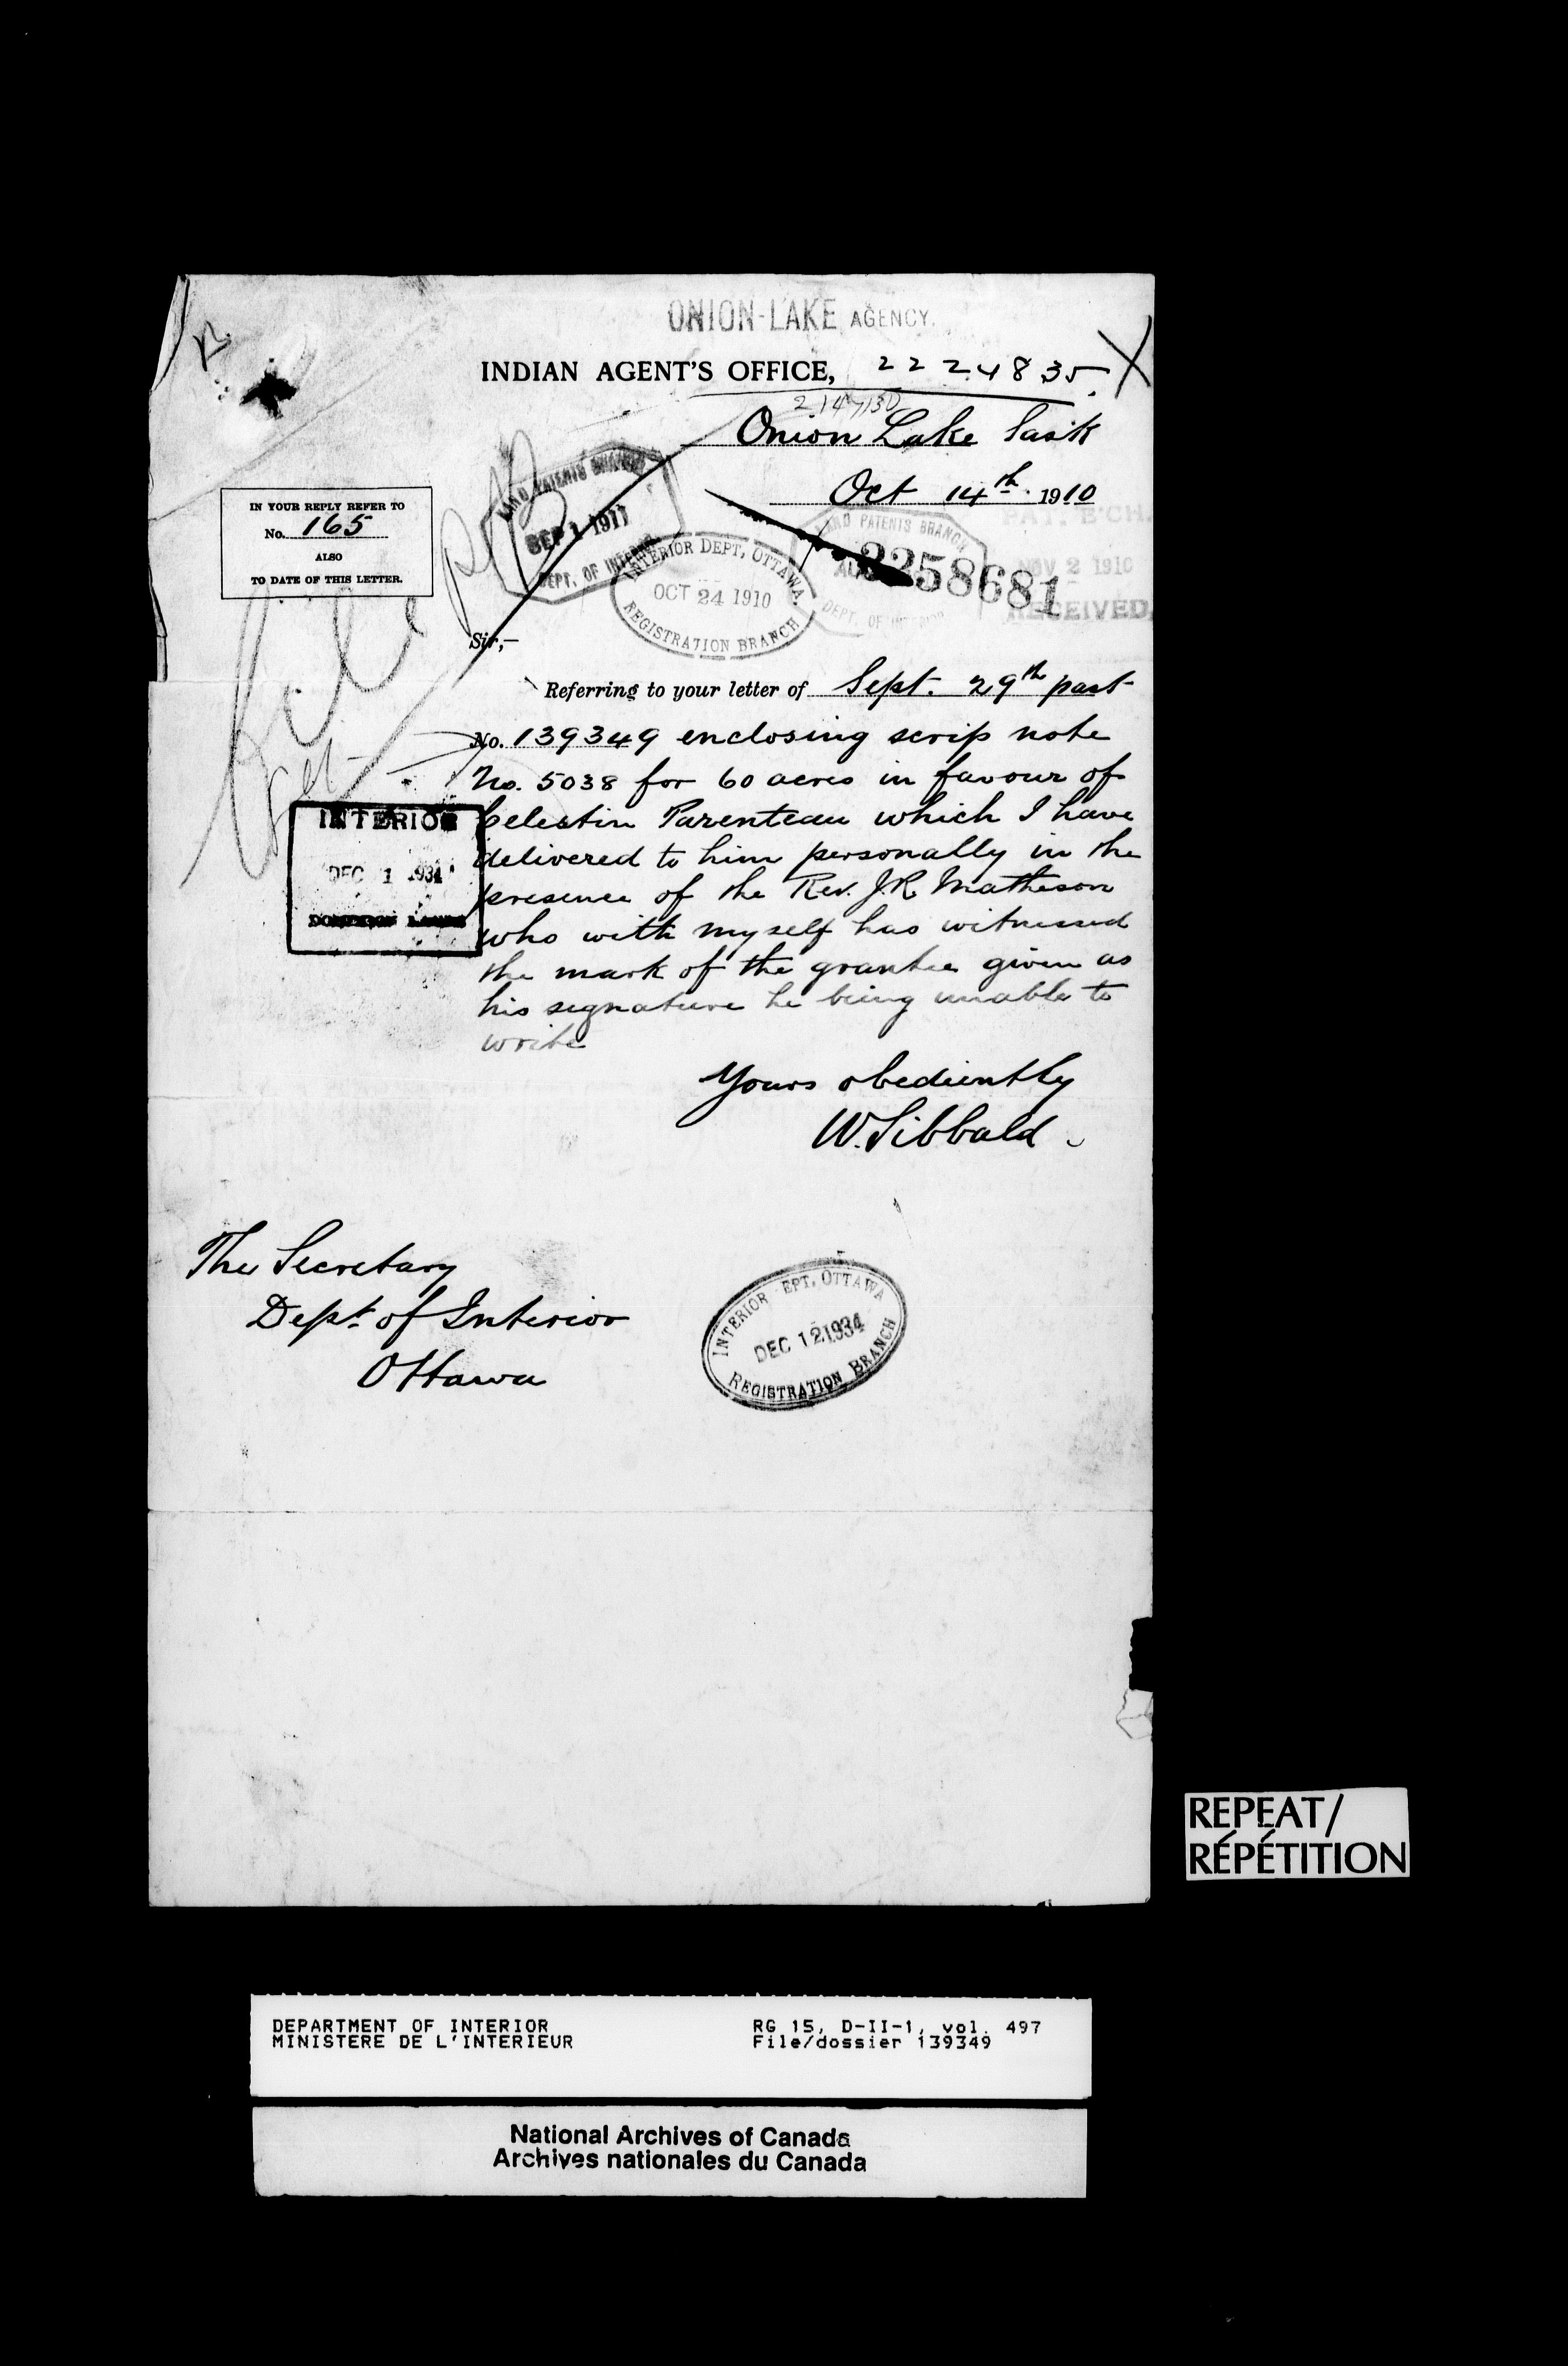 ONION-LAKE AGENCY.
INDIAN AGENT'S OFFICE, 2224835.
Onion Lake Sask
Oct 14th. 1910
IN YOUR REPLY REFER TO
No. 165
ALSO
TO DATE OF THIS LETTER.
LAND PATENTS BRANCH
SEP 1 1911
DEPT. OF INTERIOR
INTERIOR DEPT, OTTAWA.
OCT 24 1910
REGISTRATION BRANCH
LAND PATENTS BRANCH
DEPT. OF INTERIOR
2258681
PAT. B'CH.
NOV 2 1910
RECEIVED.
Sir,—
Referring to your letter of Sept. 29th past
No. 139349 enclosing scrip note
No. 5038 for 60 acres in favour of
Celestin Parenteau which I have
delivered to him personally in the
presence of the Rev. J.R. Matheson
who with myself has witnessed
the mark of the grantee given as
his signature he being unable to
write
file
INTERIOR
DEC 1 1934
DOMINION LANDS
Yours obediently
W. Sibbald
The Secretary
Dept. of Interior
Ottawa
INTERIOR EPT, OTTAWA
DEC 12 1934
REGISTRATION BRANCH
REPEAT/
RÉPÉTITION
DEPARTMENT OF INTERIOR RG 15, D-II-1, vol. 497
MINISTERE DE L'INTERIEUR File/dossier 139349
National Archives of Canada
Archives nationales du Canada